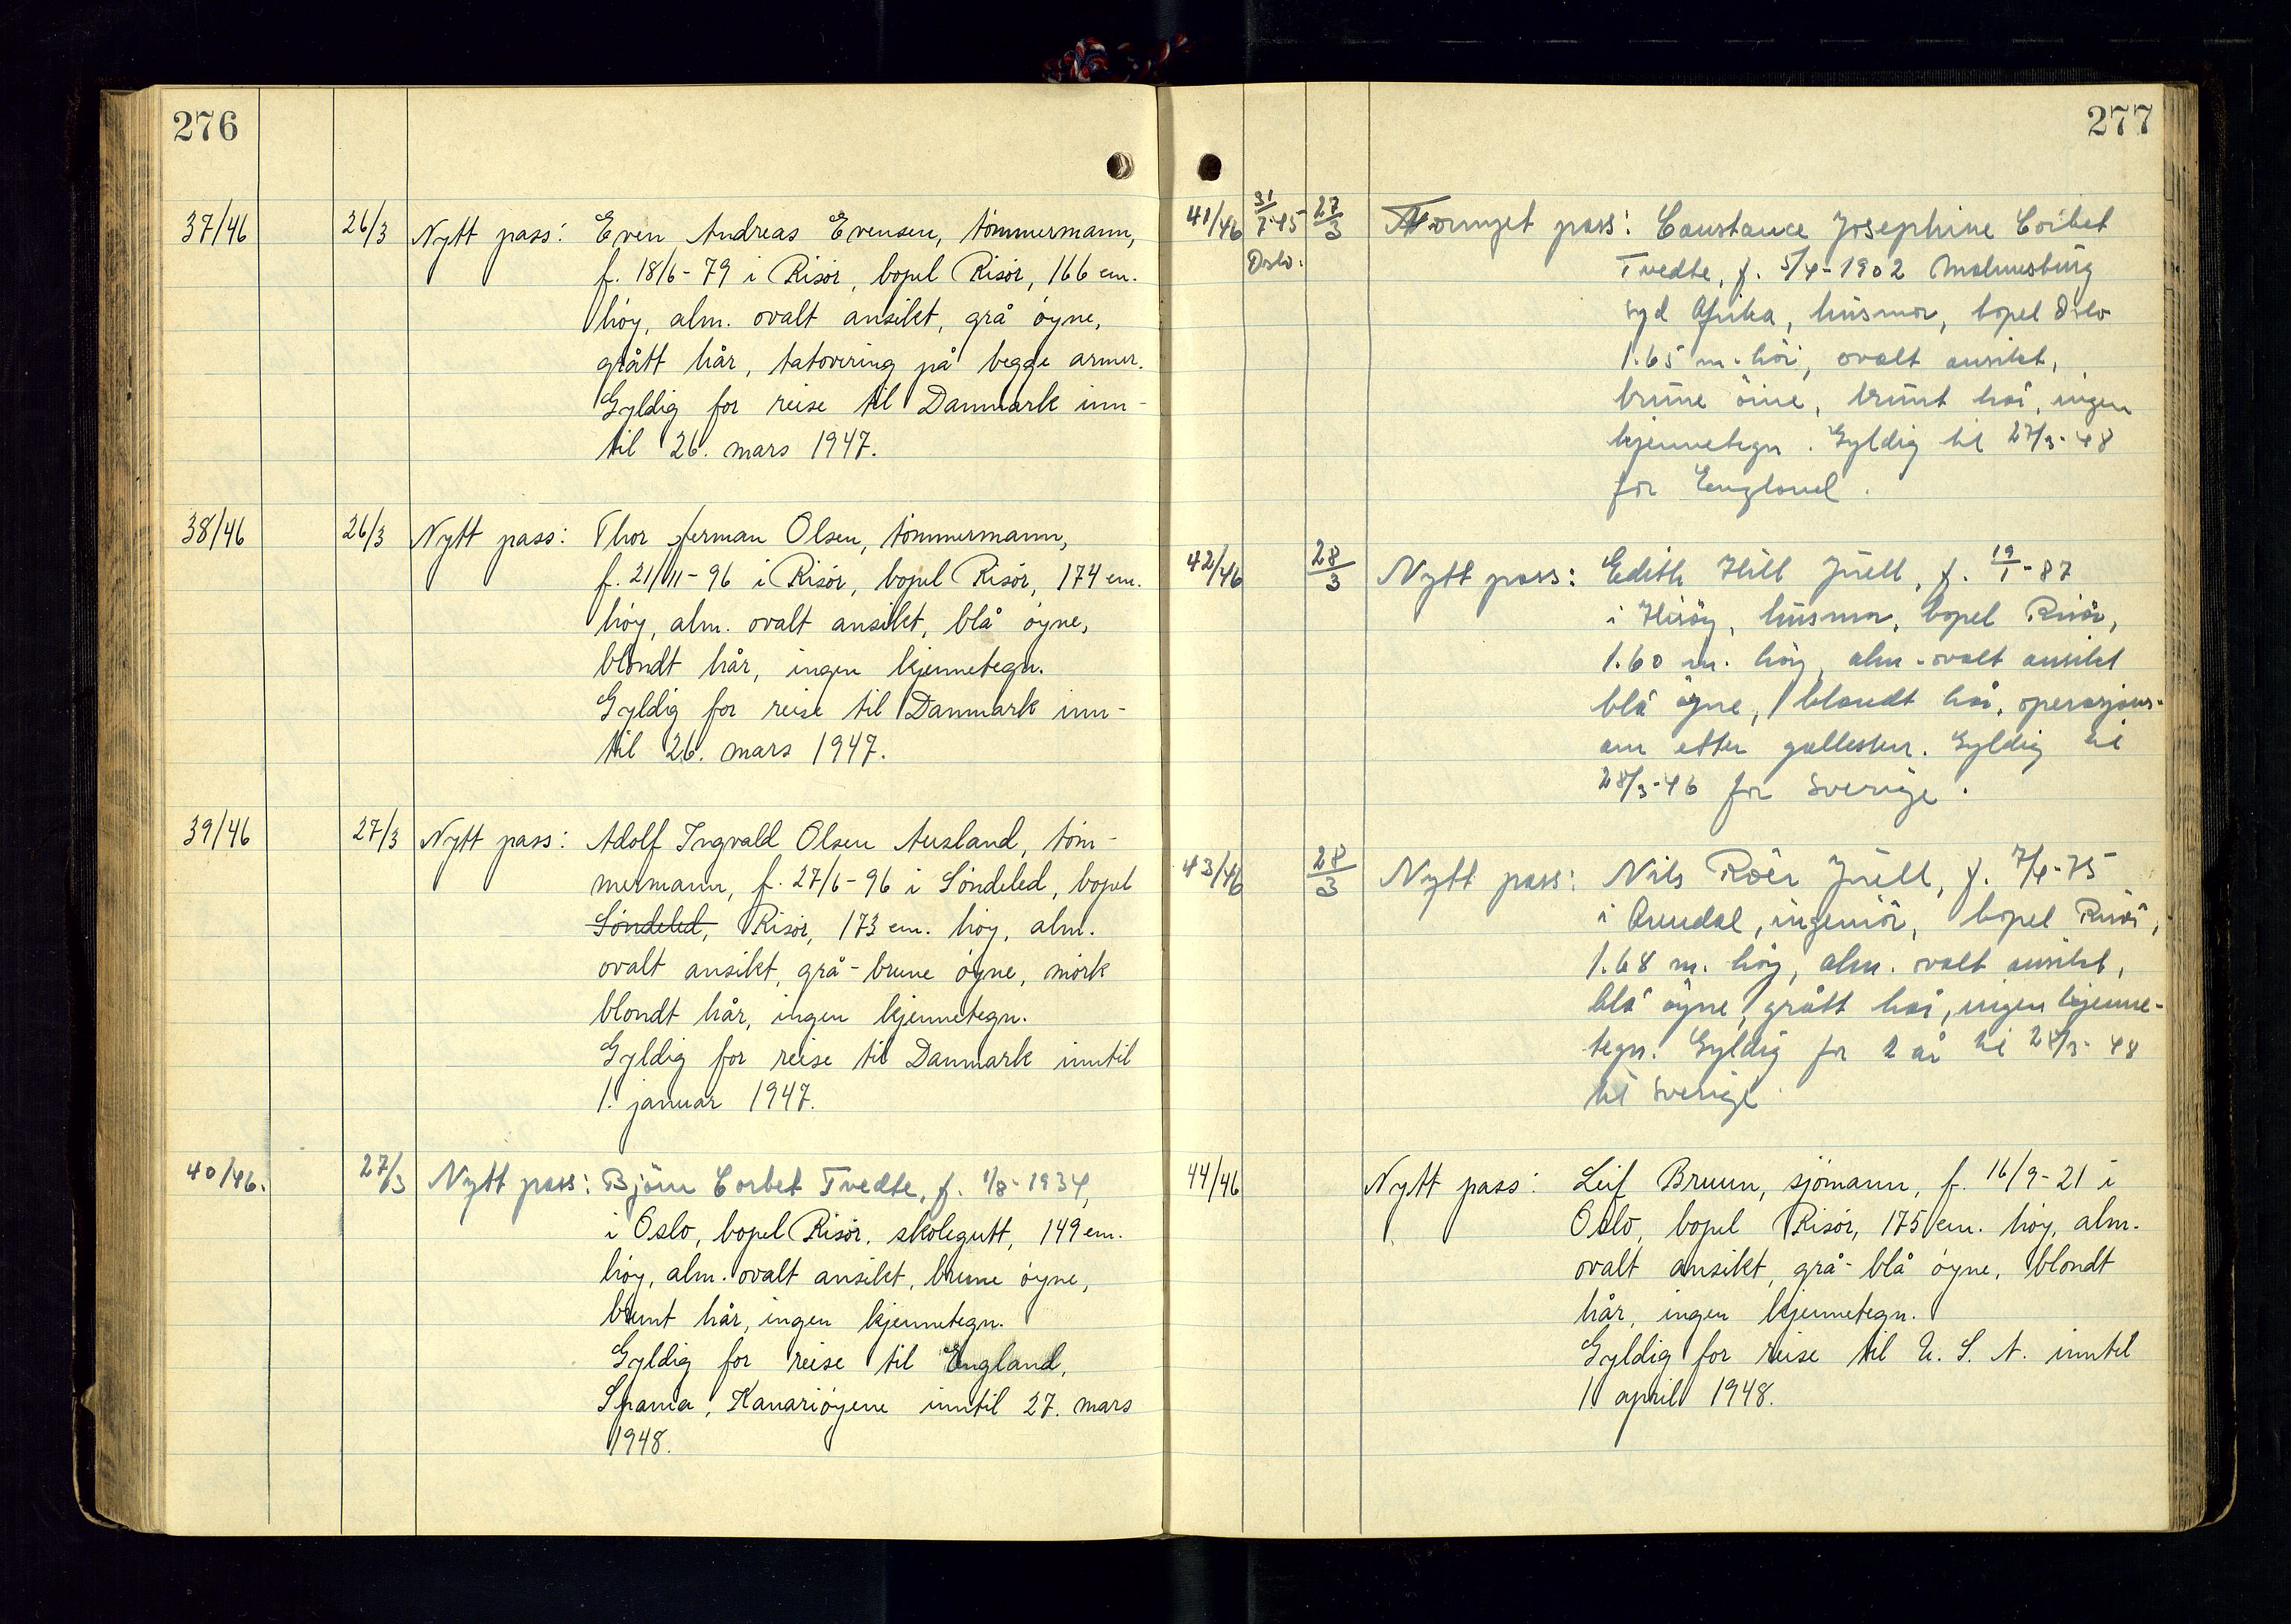 276
37/46 26/3 Nytt pass: Even Andreas Evensen, tömmermann,
f. 18/6-79 i Risör, bopel Risör, 166 cm.
höy, alm. ovalt ansikt, grå öyne,
grått hår, tatovering på begge armer.
Gyldig for reise til Danmark inn-
til 26. mars 1947.
38/46 26/3 Nytt pass: Thor Herman Olsen, tömmermann,
f. 21/11-96 i Risör, bopel Risör, 174 cm.
höy, alm. ovalt ansikt, blå öyne,
blondt hår, ingen kjennetegn.
Gyldig for reise til Danmark inn-
til 26. mars 1947.
39/46 27/3 Nytt pass: Adolf Ingvald Olsen Ausland, töm-
mermann, f. 27/6-96 i Söndeled, bopel
Söndeled, Risör, 173 cm. höy, alm.
ovalt ansikt, grå-brune öyne, mörk
blondt hår, ingen kjennetegn.
Gyldig for reise til Danmark inntil
1. januar 1947.
40/46. 27/3 Nytt pass: Björn Corbet Tvedte, f. 1/8-1934,
i Oslo, bopel Risör, skolegutt, 149 cm.
höy, alm. ovalt ansikt, brune öyne,
brunt hår, ingen kjennetegn.
Gyldig for reise til England,
Spania, Kanariöyene inntil 27. mars
1948.
277
41/46 31/7-45 Oslo. 27/3 Fornyet pass: Constance Josephine Corbet
Tvedte, f. 5/4-1902 Malmesbury
Syd Afrika, husmor, bopel Oslo
1.65 m. höi, ovalt ansikt,
brune öine, brunt hår, ingen
kjennetegn. Gyldig til 27/3-48
for England.
42/46 28/3 Nytt pass: Edith Hill Juell, f. 19/1-87
i Hisöy, husmor, bopel Risör,
1.60 m. höy, alm. ovalt ansikt
blå öyne, blondt hår, operasjons-
arr etter gallesten. Gyldig til
28/3-46 for Sverige.
43/46 28/3 Nytt pass: Nils Roër Juell, f. 7/4-75
i Arendal, ingeniör, bopel Risör,
1.68 m. höy, alm. ovalt ansikt,
blå öyne, grått hår, ingen kjenne-
tegn. Gyldig for 2 år til 28/3-48
til Sverige.
44/46 Nytt pass: Leif Bruun, sjömann, f. 16/9-21 i
Oslo, bopel Risör, 175 cm. höy, alm.
ovalt ansikt, grå-blå öyne, blondt
hår, ingen kjennetegn.
Gyldig for reise til U. S. A. inntil
1. april 1948.